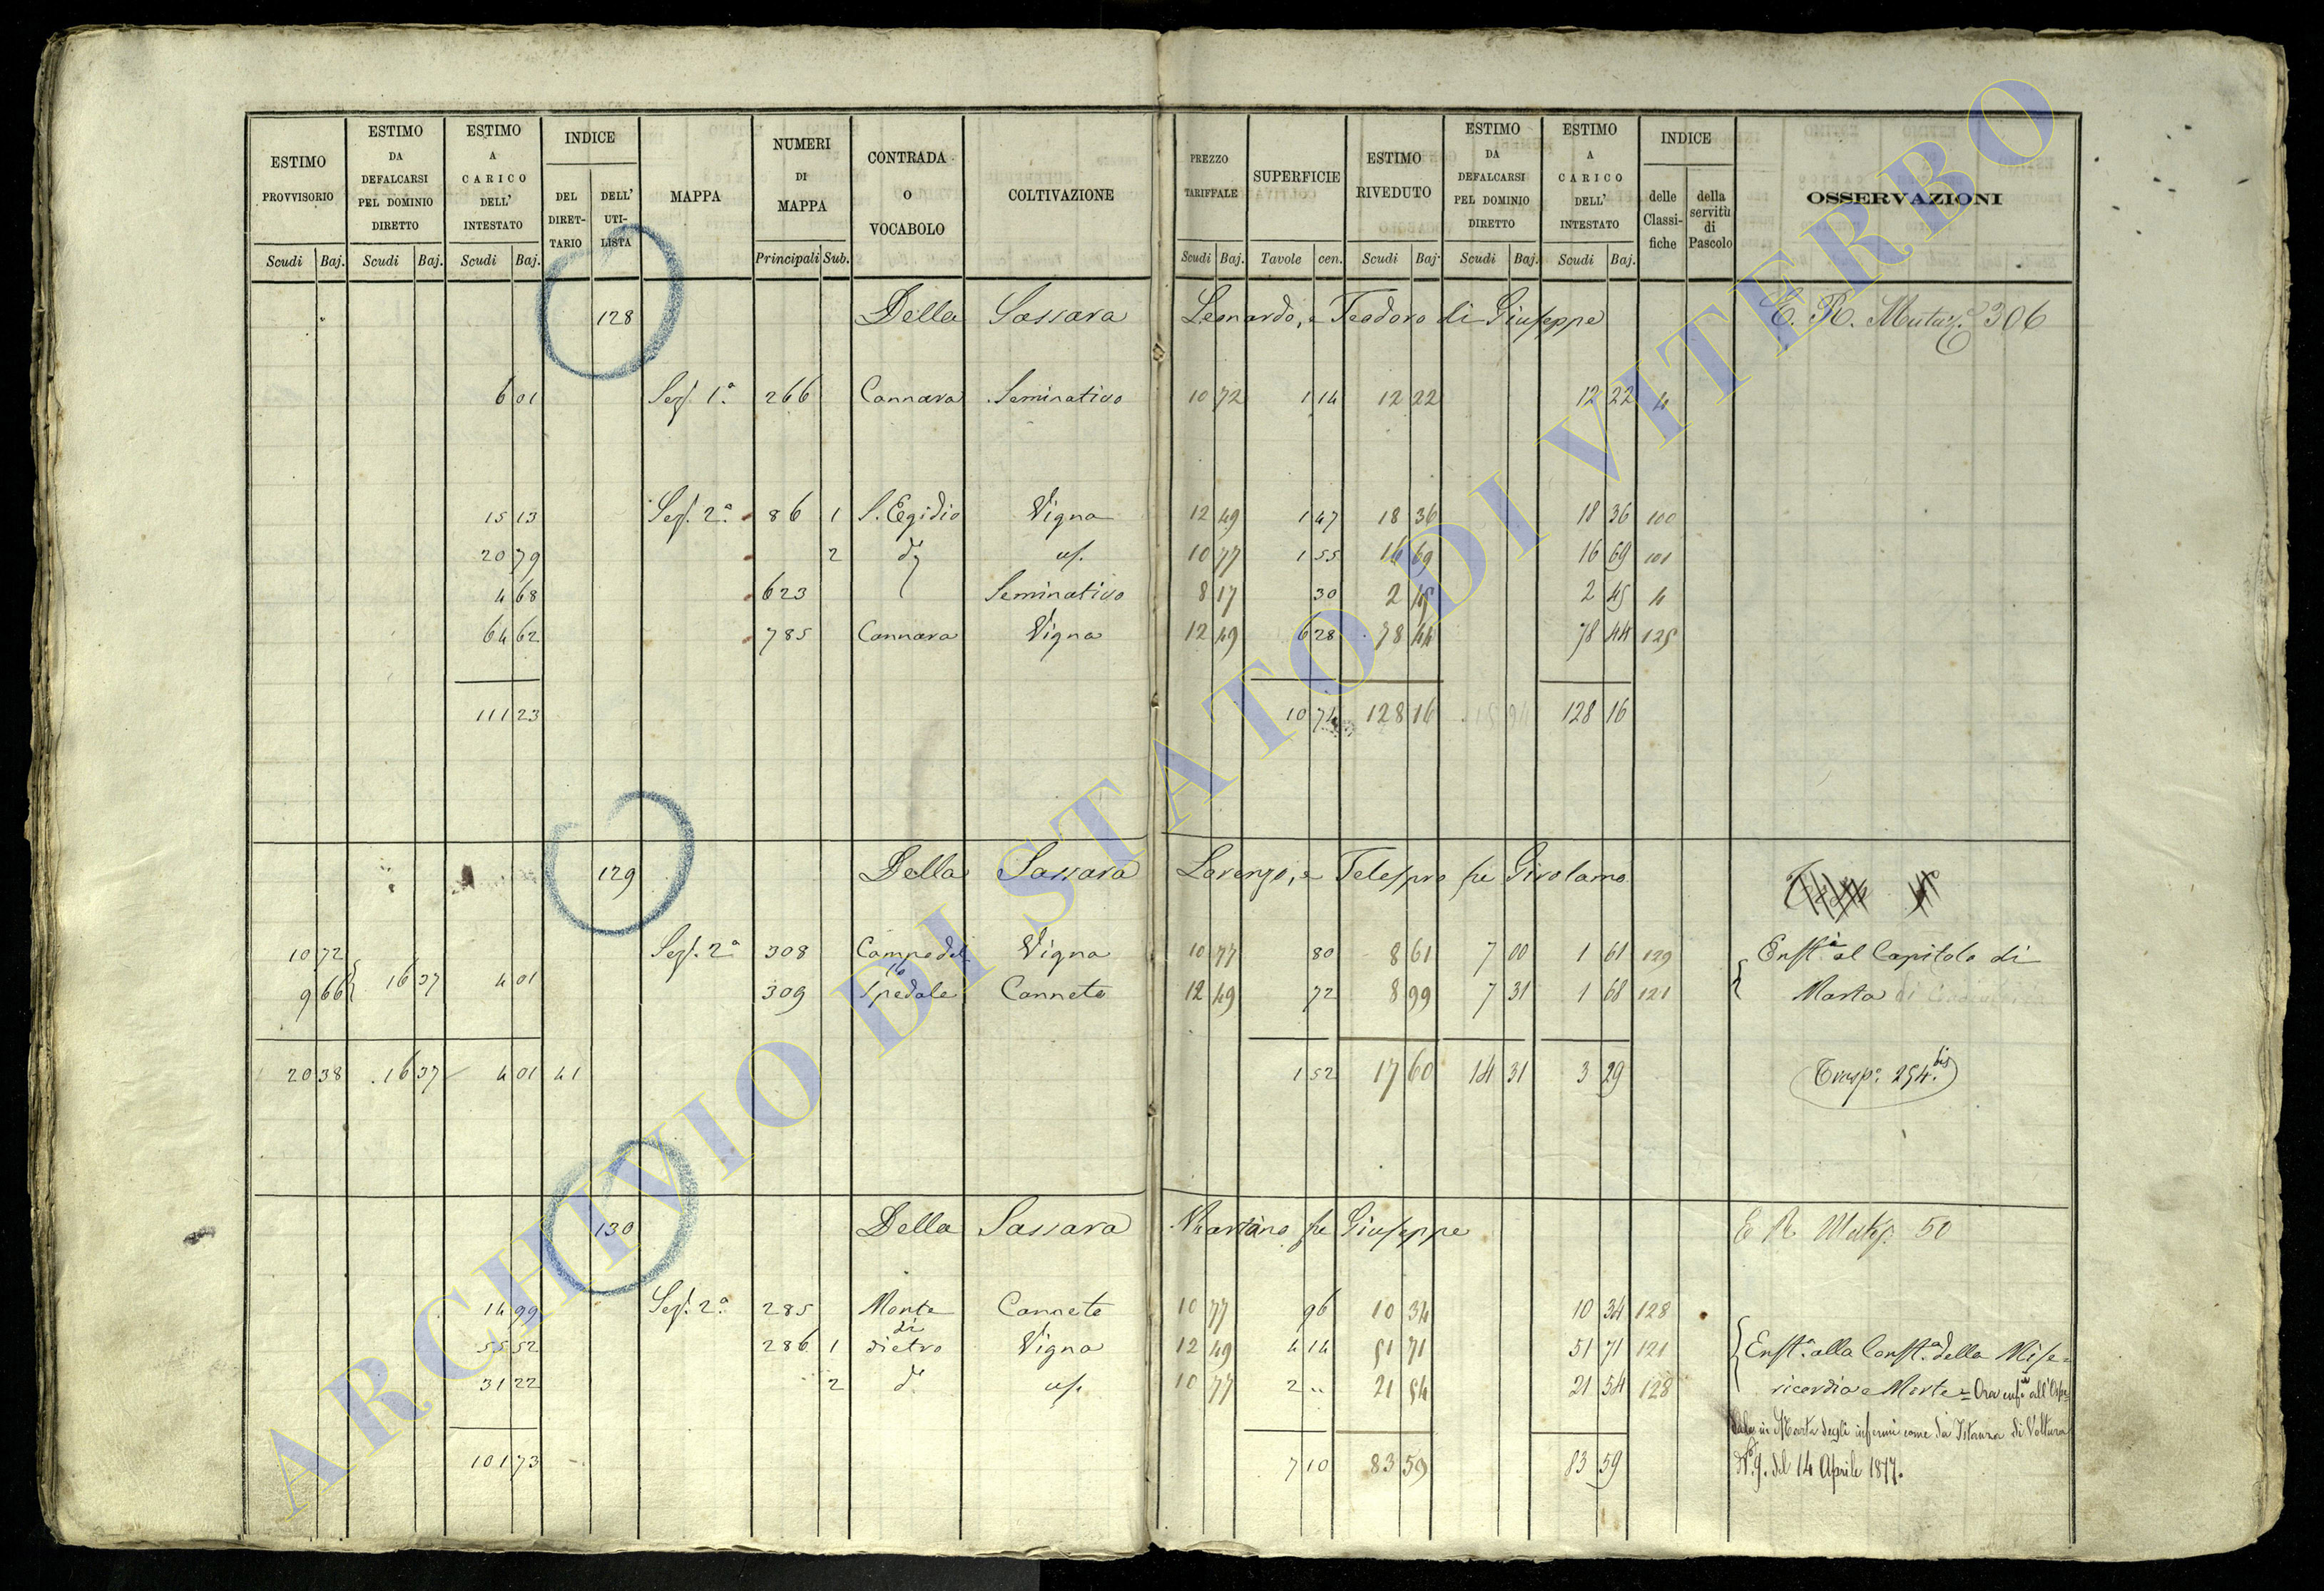 ESTIMO PROVVISORIO ESTIMO DA DEFALCARSI PEL DOMINIO DIRETTO ESTIMO A CARICO DELL' INTESTATO INDICE DEL DIRETTARIO DELL' UTILISTA MAPPA NUMERI DI MAPPA CONTRADA O VOCABOLO COLTIVAZIONE PREZZO TARIFFALE SUPERFICIE ESTIMO RIVEDUTO ESTIMO DA DEFALCARSI PEL DOMINIO DIRETTO ESTIMO A CARICO DELL' INTESTATO INDICE delle Classifiche della servitù di Pascolo OSSERVAZIONI
Scudi Baj. Scudi Baj. Scudi Baj. Principali Sub. Scudi Baj. Tavole cen. Scudi Baj. Scudi Baj. Scudi Baj.
128 Della Sassara Leonardo, e Teodoro di Giuseppe E. R. 306
6 01 Sez. 1ª 266 Cannara Seminativo 10 72 1 14 12 22 12 22 4
15 13 Sez. 2ª 86 1 S. Egidio Vigna 12 49 1 47 18 36 18 36 100
20 79 2 dº us. 10 77 1 55 16 69 16 69 101
4 68 623 Seminativo 8 17 30 2 45 2 45 4
64 62 785 Cannara Vigna 12 49 6 28 78 44 78 44 125
111 23 10 74 128 16 128 16
129 Della Sassara Lorenzo, e Telespro fu Girolamo
10 72 Sez. 2ª 308 Campo del Vigna 10 77 80 8 61 7 00 1 61 129 Enfª al Capitolo di
9 66 16 37 4 01 309 Spedale Canneto 12 49 72 8 99 7 31 1 68 121 Marta
20 38 16 37 4 01 41 1 52 17 60 14 31 3 29 Trasp. 254 bis
130 Della Sassara Martino fu Giuseppe E R 50
14 99 Sez. 2ª 285 Monte Canneto 10 77 96 10 34 10 34 128
55 52 286 1 di dietro Vigna 12 49 4 14 51 71 51 71 121 Enfª alla Confª della Mise=
31 22 2 dº us. 10 77 2 " 21 54 21 54 128 ricordia e Morte = Ora enfª all'Ospe=
dale in Marta degli infermi come da Istanza di Voltura
101 73 7 10 83 59 83 59 Nº 9. del 14 Aprile 1877.
ARCHIVIO DI STATO DI VITERBO